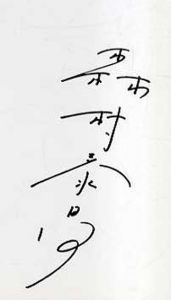 森村泰昌